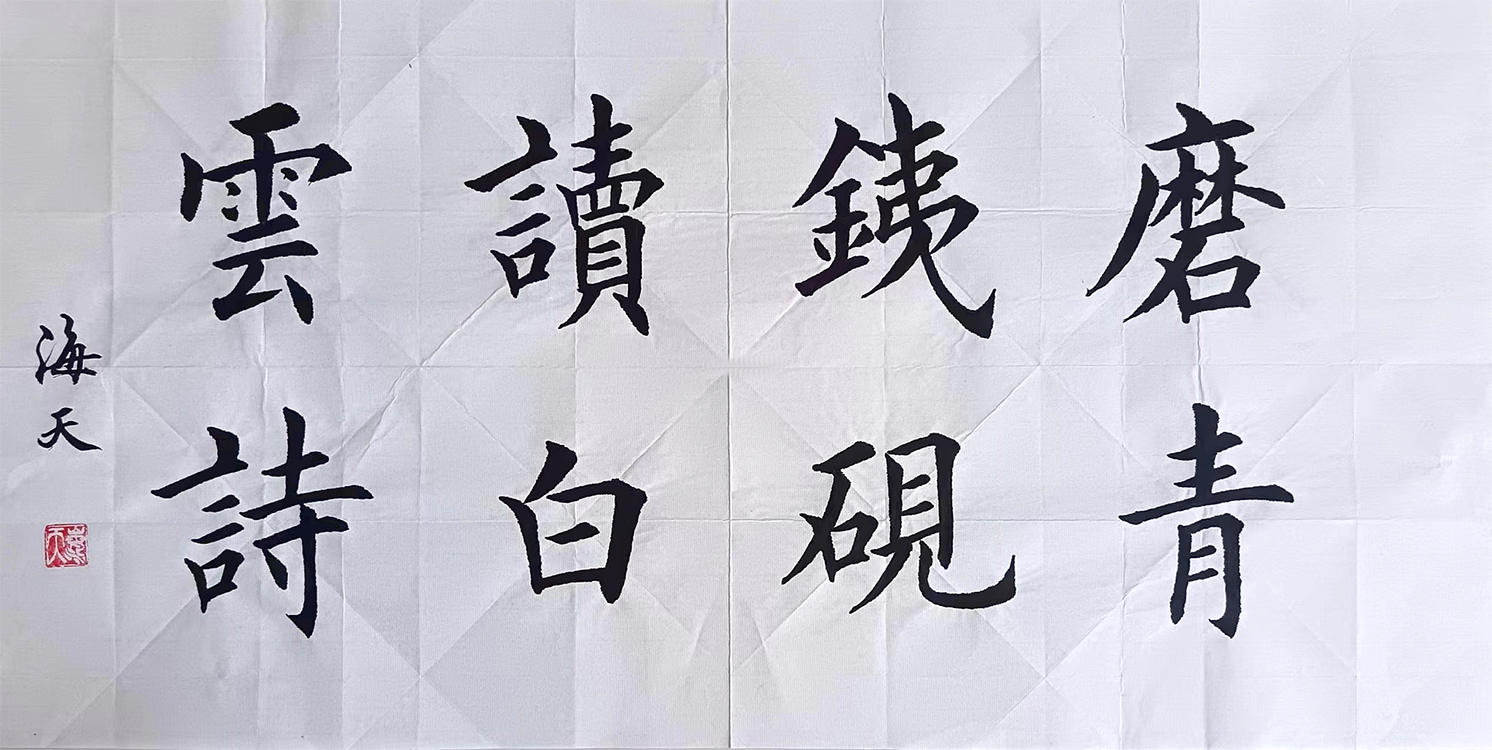 磨青
銕硯
讀白
雲詩
海天